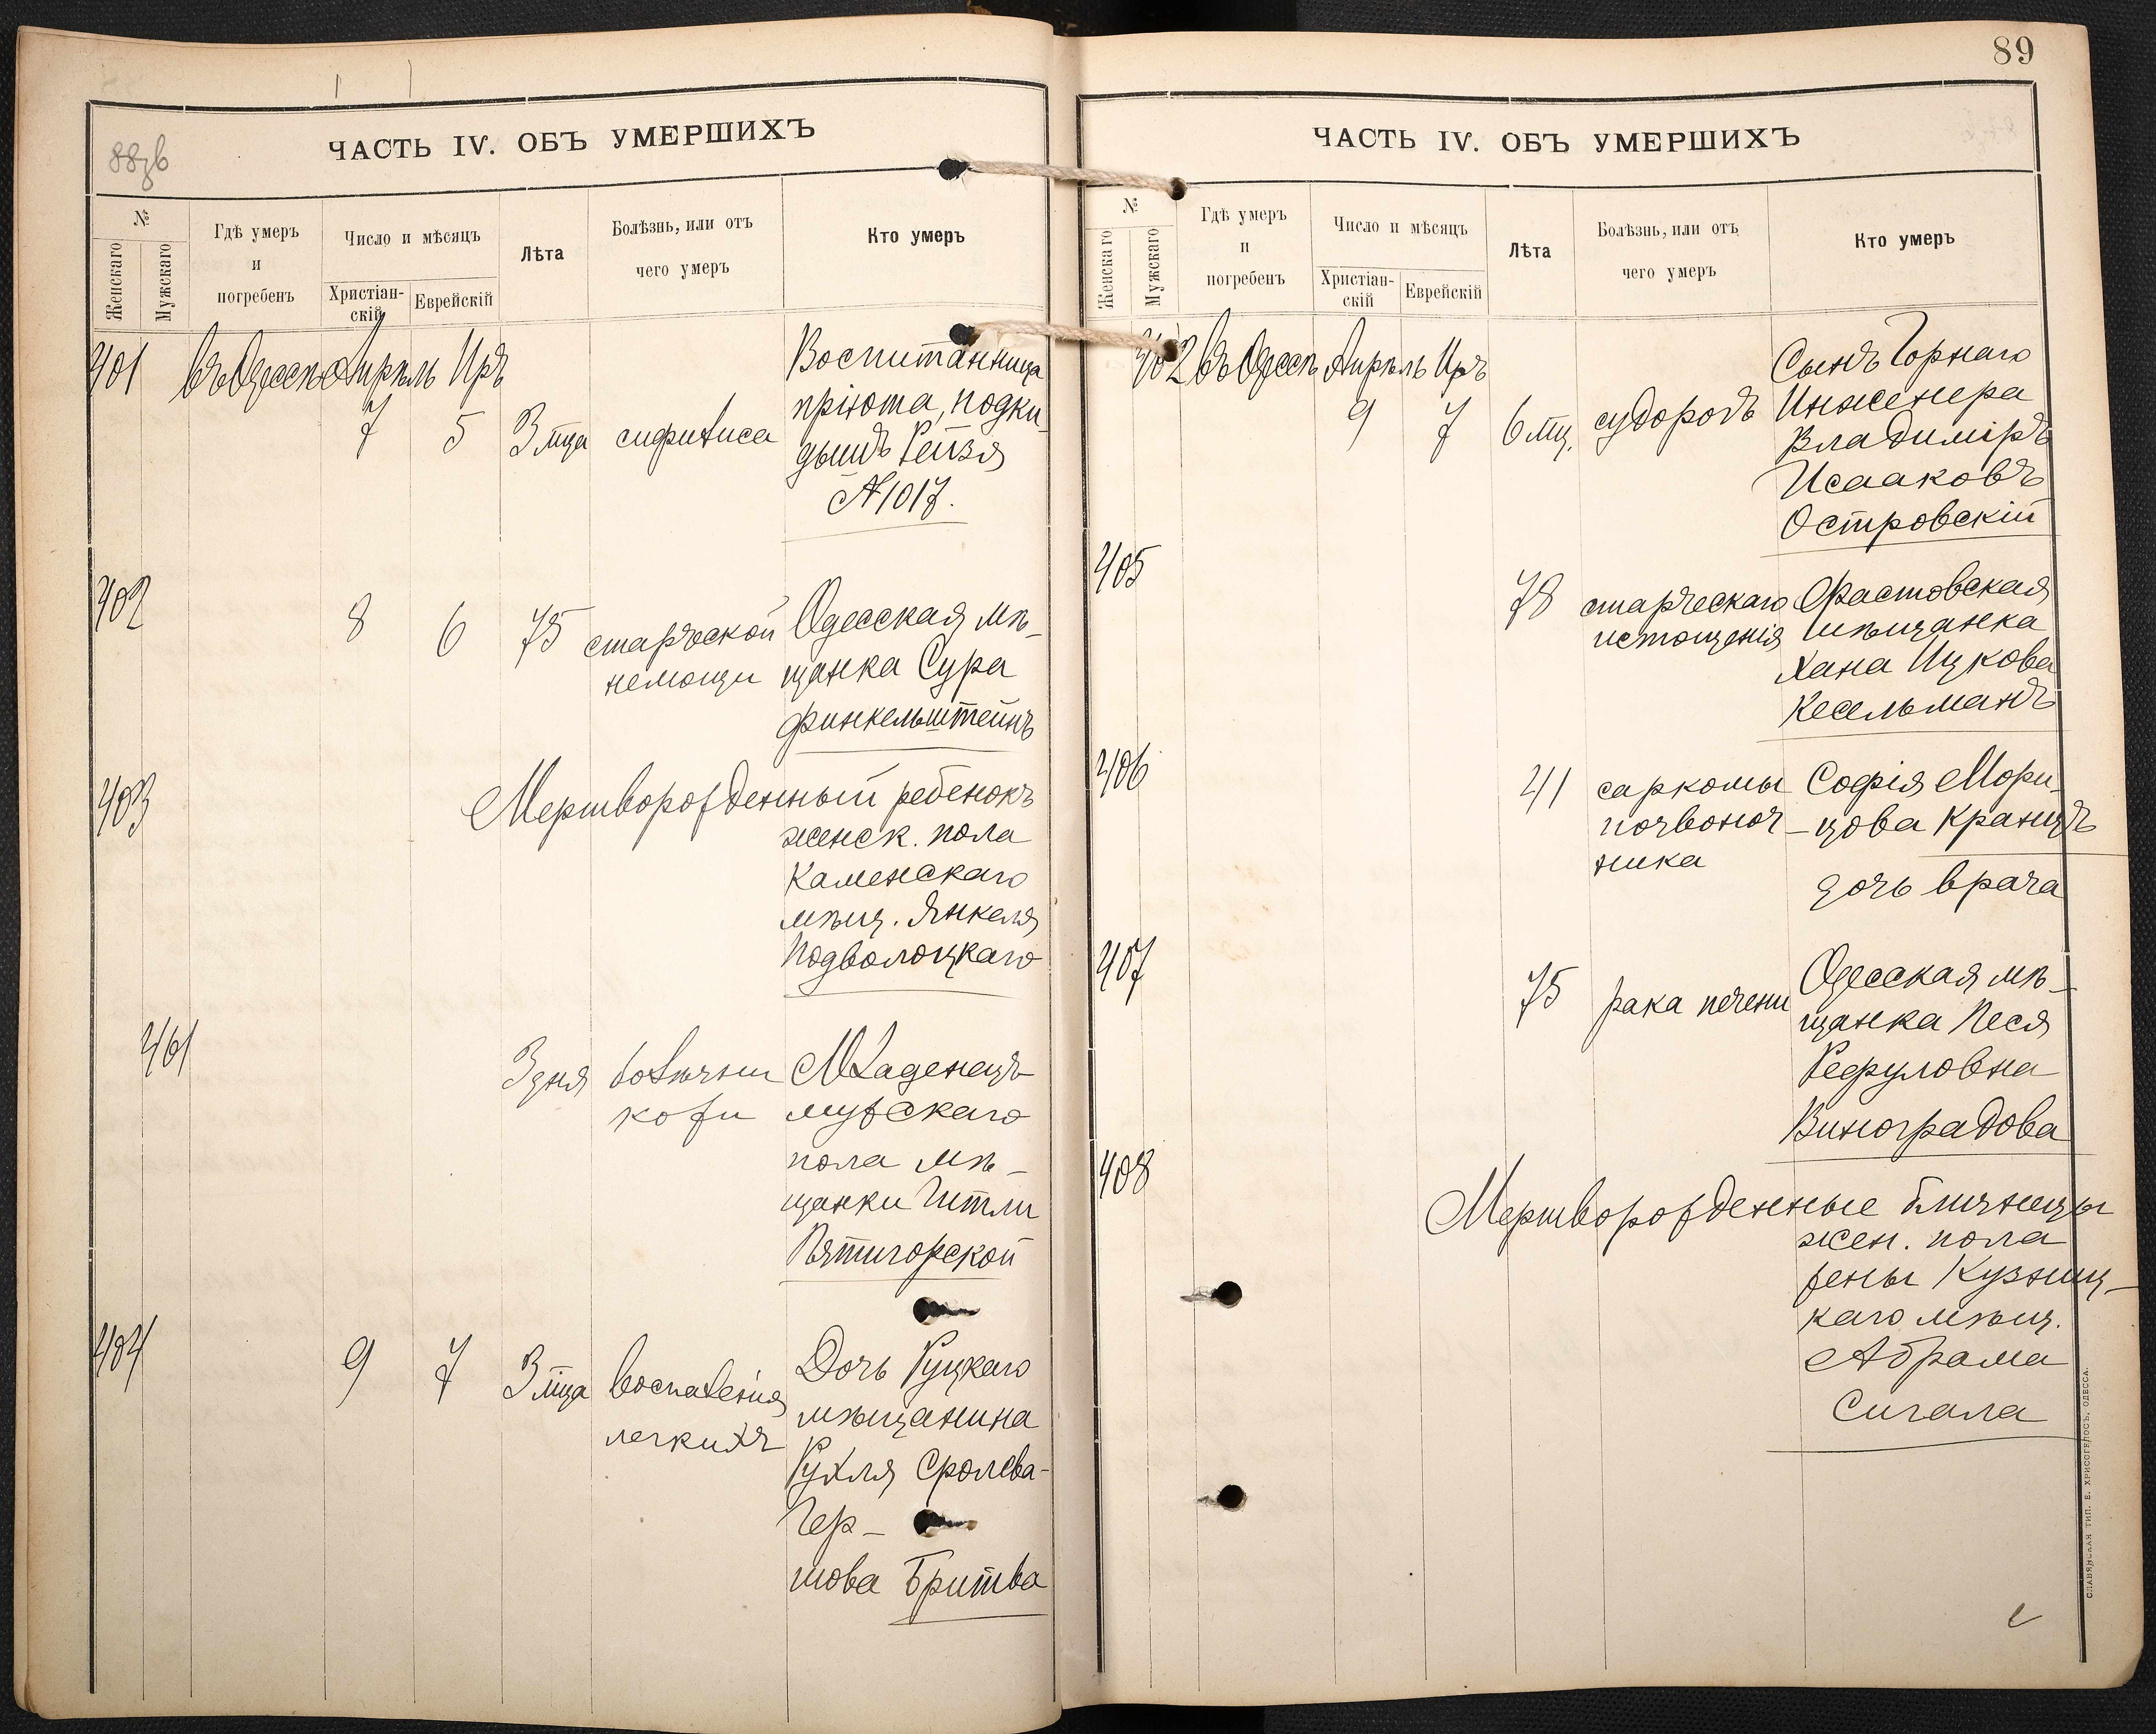 88зв
ЧАСТЬ IV. ОБЪ УМЕРШИХЪ
№
Женскаго
Мужскаго
Гдѣ умеръ
и
погребенъ
Число и мѣсяцъ
Христіан-
скій
Еврейскій
Лѣта
Болѣзнь, или отъ
чего умеръ
Кто умеръ
401 въ Одессѣ Апрѣль Иръ
7 5 3 мца сифилиса
Воспитанница
пріюта, подки-
дышъ Рейзя
N 1017.
402 8 6 75 старческой
немощи
Одесская мѣ-
щанка Сура
Финкельштейнъ
403 Мертворожденный ребенокъ
женск. пола
Каменскаго
мѣщ. Янкеля
Подволоцкаго
461 3 дня болѣзни
кожи
Младенецъ
мужскаго
пола мѣ-
щанки Гитли
Пятигорской
404 9 7 3 мца воспаленія
легкихъ
Дочь Руцкаго
мѣщанина
Рухля Сролева-
Гер-
шова Бритва
89
ЧАСТЬ IV. ОБЪ УМЕРШИХЪ
№
Женскаго
Мужскаго
Гдѣ умеръ
и
погребенъ
Число и мѣсяцъ
Христіан-
скій
Еврейскій
Лѣта
Болѣзнь, или отъ
чего умеръ
Кто умеръ
462 въ Одессѣ Апрѣль Иръ
9 7 6 мц. судорогъ
Сынъ Горнаго
Инженера
Владиміръ
Исааковъ
Островскій
405 78 старческаго
истощенія
Фастовская
мѣщанка
Хана Ицкова
Кесельманъ
406 41 саркомы
позвоноч-
ника
Софія Мори-
цова Кранцъ
дочь врача
407 75 рака печени
Одесская мѣ-
щанка Песя
Рефуловна
Виноградова
408 Мертворожденные близнецы
жен. пола
жены Кузниц-
каго мѣщ.
Абрама
Сигала
СЛАВЯНСКАЯ ТИП. Е. ХРИСОГЕЛОСЪ, ОДЕССА.